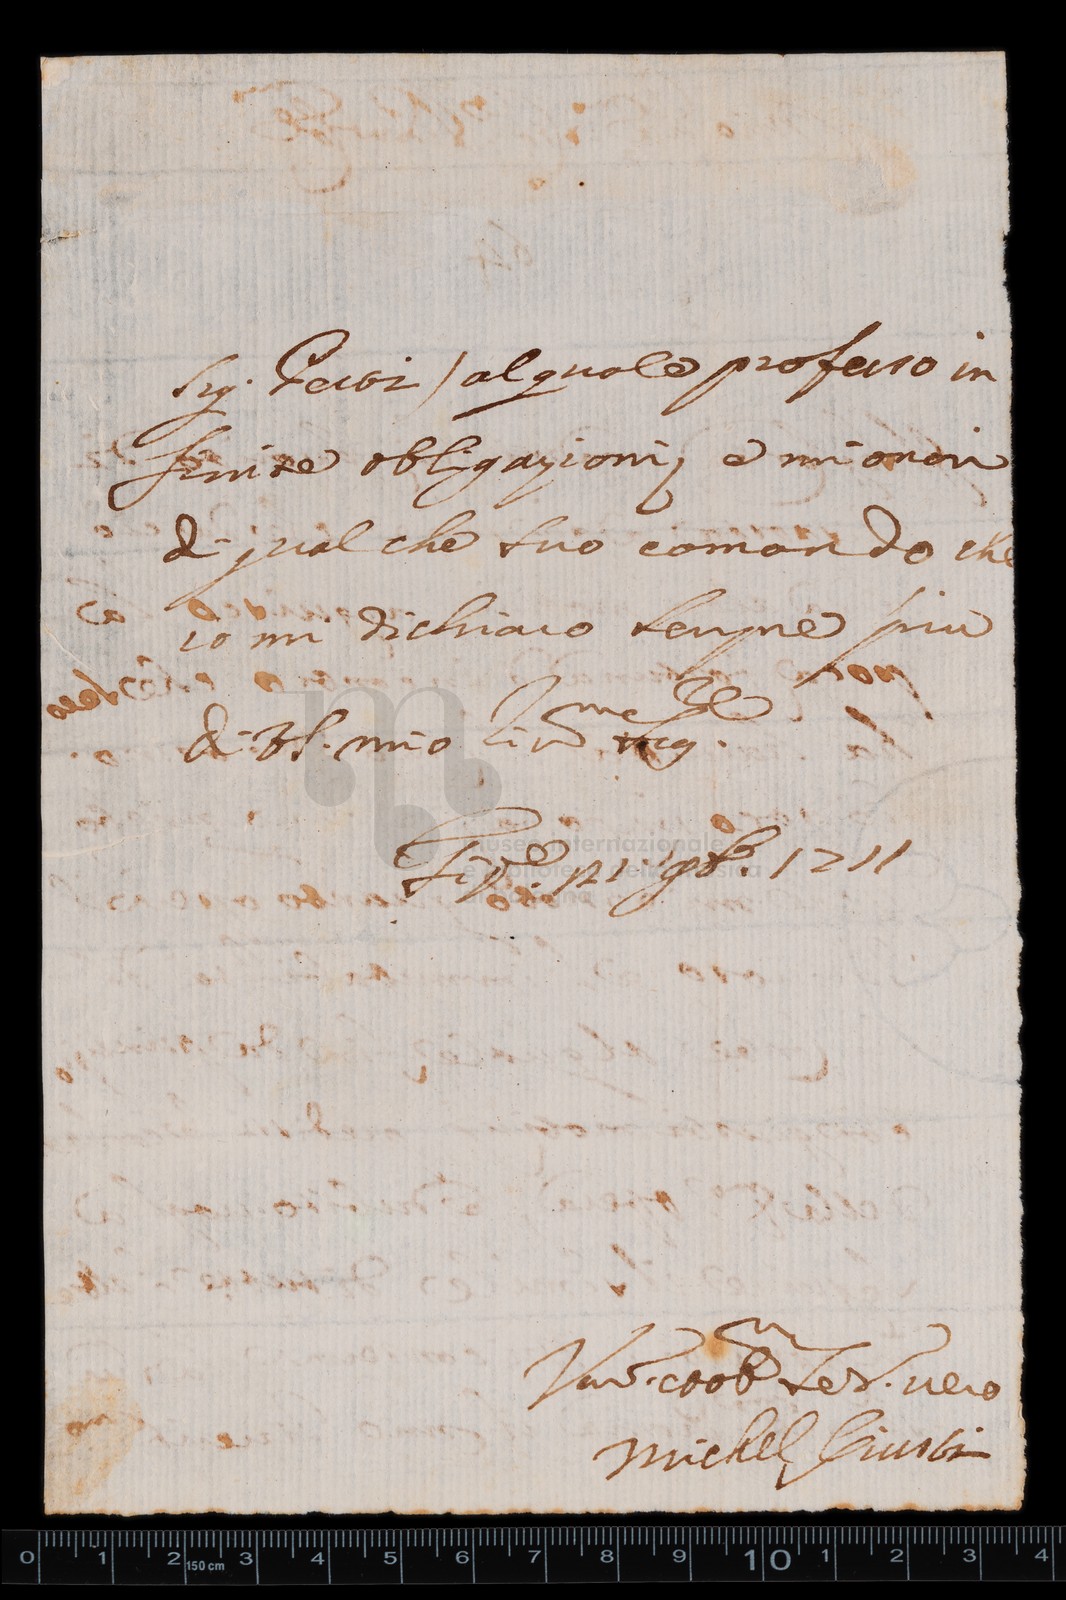 Sig. Perti) al quale professo in
finite obligazioni, e mi onori
di qual che suo comando che
io mi dichiaro sempre più
di VS. mio
Fir.e p.º 9bre. 1711
museo internazionale
e biblioteca della musica
di bologna
Dev. ed obb.mo Ser. vero
Michel Giusti
0 1 2 150 cm 3 4 5 6 7 8 9 10 1 2 3 4